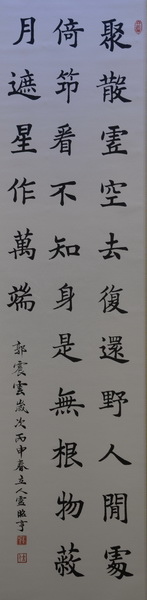 聚散虛空去復還野人閒處
倚筇看不知身是無根物蔽
月遮星作萬端
郭震雲歲次丙申春